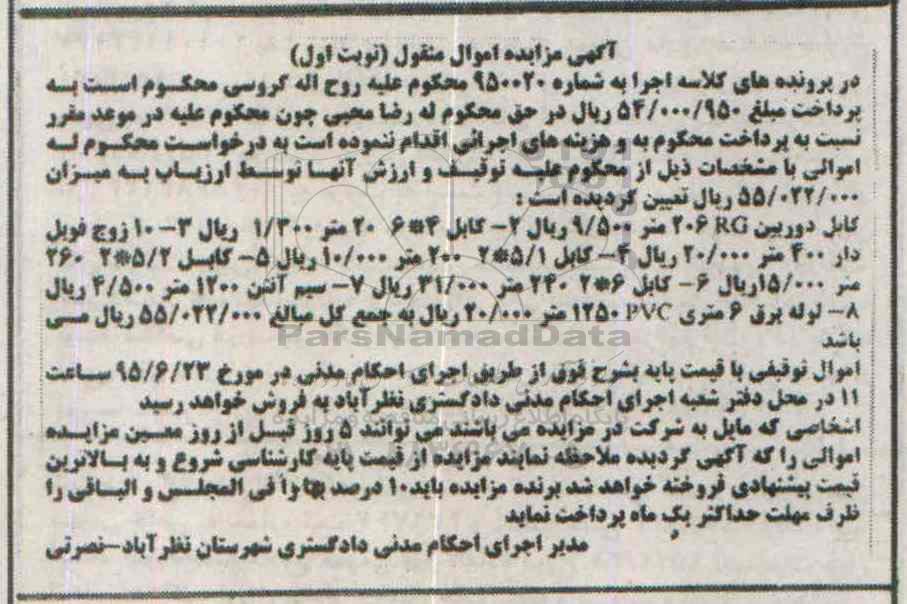 آگهی مزایده اموال منقول (نوبت اول)
در پرونده های کلاسه اجرا به شماره ۹۵۰۰۲۰ محکوم علیه روح اله گروسی محکوم است به
پرداخت مبلغ ۵۴/۰۰۰/۹۵۰ ریال در حق محکوم له رضا محبی چون محکوم علیه در موعد مقرر
نسبت به پرداخت محکوم به و هزینه های اجرائی اقدام ننموده است به درخواست محکوم له
اموالی با مشخصات ذیل از محکوم علیه توقیف و ارزش آنها توسط ارزیاب به میزان
۵۵/۰۲۲/۰۰۰ ریال تعیین گردیده است :
کابل دوربین RG ۲۰۶ متر ۹/۵۰۰ ریال ۲- کابل ۴*۶ ۲۰ متر ۱/۳۰۰ ریال ۳- ۱۰ زوج فویل
دار ۴۰۰ متر ۲۰/۰۰۰ ریال ۴- کابل ۵/۱*۲ ۲۰۰ متر ۱۰/۰۰۰ ریال ۵- کابل ۵/۲*۲ ۲۶۰
متر ۱۵/۰۰۰ ریال ۶- کابل ۶*۲ ۲۴۰ متر ۳۱/۰۰۰ ریال ۷- سیم آنتن ۱۲۰۰ متر ۴/۵۰۰ ریال
۸- لوله برق ۶ متری PVC ۱۲۵۰ متر ۲۰/۰۰۰ ریال به جمع کل مبالغ ۵۵/۰۲۲/۰۰۰ ریال می
باشد
ParsNamadData
اموال توقیفی با قیمت پایه بشرح فوق از طریق اجرای احکام مدنی در مورخ ۹۵/۶/۲۳ ساعت
۱۱ در محل دفتر شعبه اجرای احکام مدنی دادگستری نظرآباد به فروش خواهد رسید
اشخاصی که مایل به شرکت در مزایده می باشند می توانند ۵ روز قبل از روز معین مزایده
اموالی را که آگهی گردیده ملاحظه نمایند مزایده از قیمت پایه کارشناسی شروع و به بالاترین
قیمت پیشنهادی فروخته خواهد شد برنده مزایده باید ۱۰ درصد بها را فی المجلس و الباقی را
ظرف مهلت حداکثر یک ماه پرداخت نماید
مدیر اجرای احکام مدنی دادگستری شهرستان نظرآباد-نصرتی